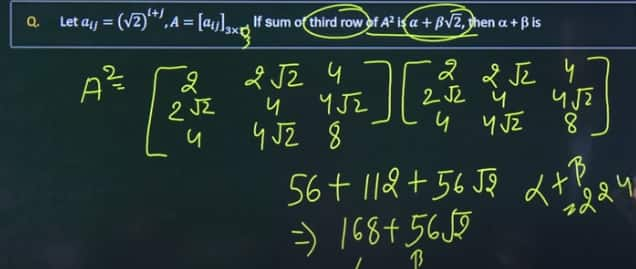 Q. Let aᵢⱼ = (√2)ⁱ⁺ʲ, A = [aᵢⱼ]₃ₓ₃. If sum of third row of A² is α + β√2, then α + β is
A² = [2 2√2 4] [2 2√2 4]
[2√2 4 4√2] [2√2 4 4√2]
[4 4√2 8] [4 4√2 8]
56 + 112 + 56√2 α+β
=224
⇒ 168 + 56√2
β